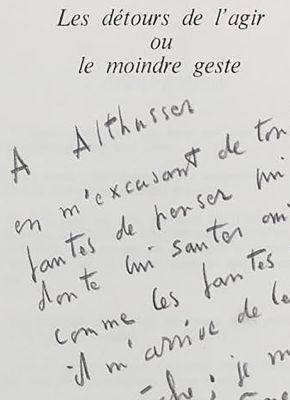 Les détours de l'agir
ou
le moindre geste
A Althusser
en m'excusant de ton
fautes de penser qui
doute lui sauter
comme les fautes
il m'arrive de le
je m